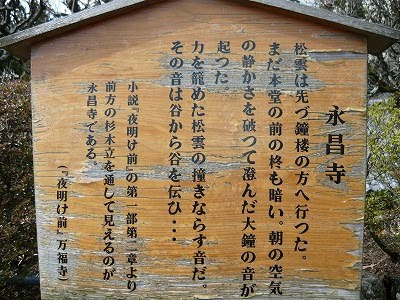 永昌寺
松雲は先づ鐘楼の方へ行つた。
まだ本堂の前の柊も暗い。朝の空気
の静かさを破つて澄んだ大鐘の音が
起つた。
力を籠めた松雲の撞きならす音だ。
その音は谷から谷を伝ひ・・・
小説『夜明け前』の第一部第二章より
前方の杉木立を通して見えるのが
永昌寺である。
(『夜明け前』万福寺)